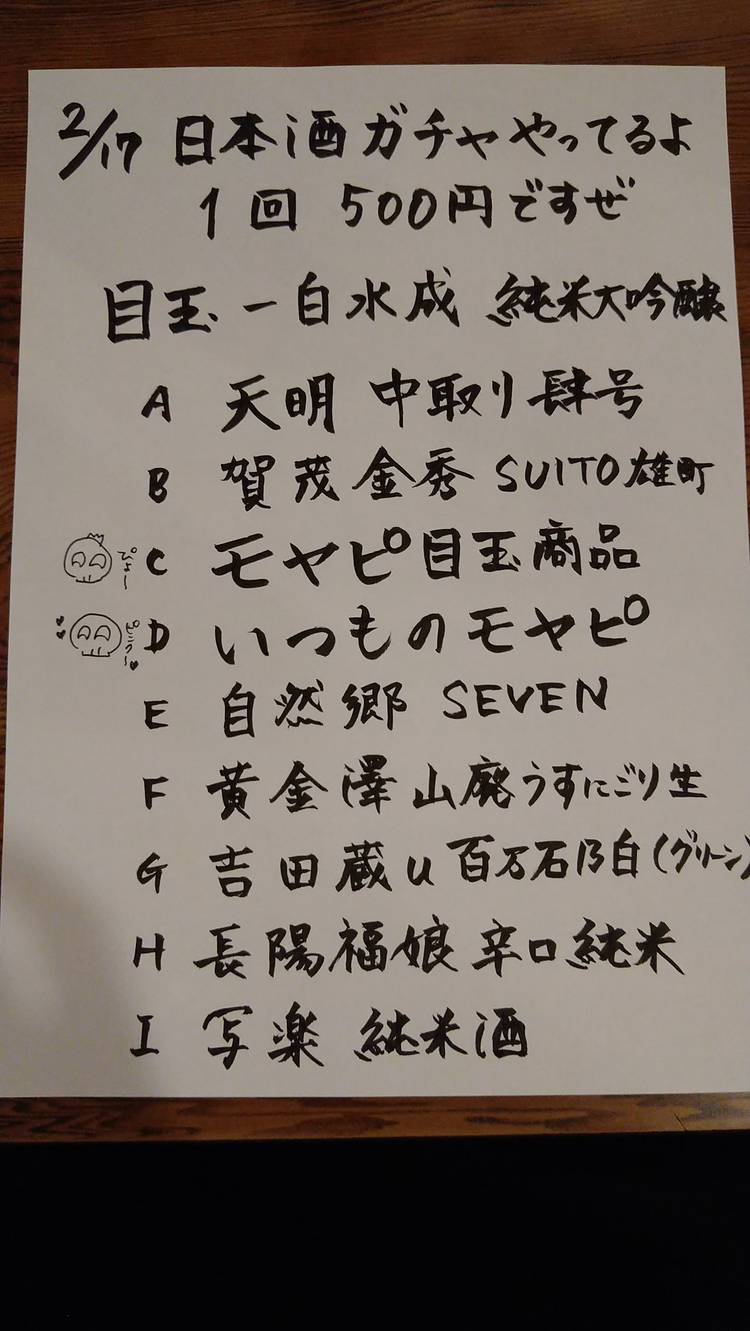 2/17 日本酒ガチャやってるよ
1回 500円ですぜ
目玉 一白水成 純米大吟醸
A 天明 中取り肆号
B 賀茂金秀 SUITO雄町
ぴよー C モヤピ目玉商品
ピンク〜 D いつものモヤピ
E 自然郷 SEVEN
F 黄金澤山廃うすにごり生
G 吉田蔵u 百万石乃白(グリーン)
H 長陽福娘 辛口純米
I 写楽 純米酒